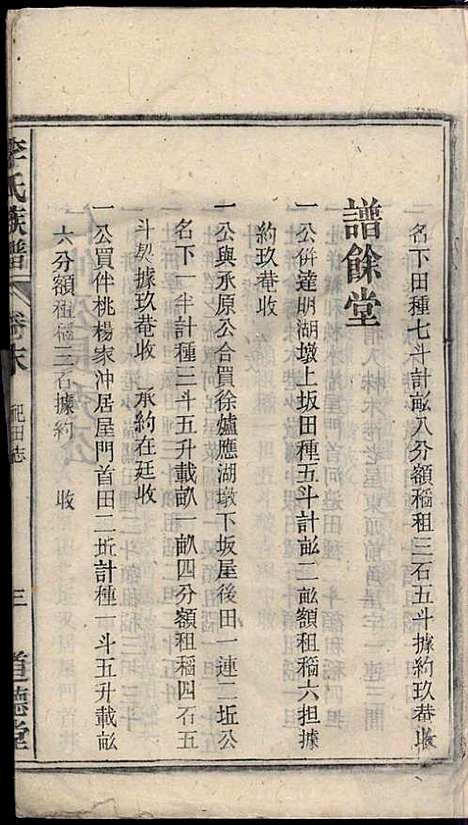 一名下田種七斗計畝八分額稲租三石五斗據約玖菴收
譜餘堂
一公併達明湖墩上坂田種五斗計畝二畝額租稲六担據
約玖菴收
一公與承原公合買徐爐應湖墩下坂屋後田一連二坵公
名下一半計種三斗五升載畝一畝四分額租稲四石五
斗契據玖菴收 承約在廷收
一公買伴桃楊家冲居屋門首田二坵計種一斗五升載畝
六分額租稲三石據約 收
李氏族譜 卷末 祀田志 三 道德堂